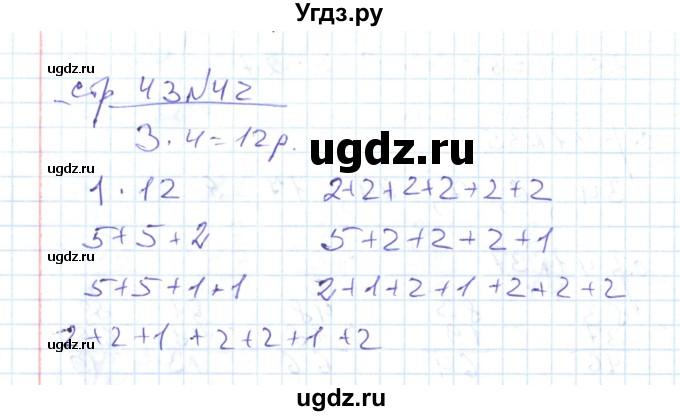 Угдз.ру
ugdz.ru ugdz.ru
стр 43 № 42
3 · 4 = 12 р.
ugdz.ru
1 · 12 2+2+2+2+2+2
ugdz.ru
5+5+2 5+2+2+2+1
ugdz.ru ugdz.ru
5+5+1+1 2+1+2+1+2+2+2
2+2+1+2+2+1+2
ugdz.ru ugdz.ru
ugdz.ru